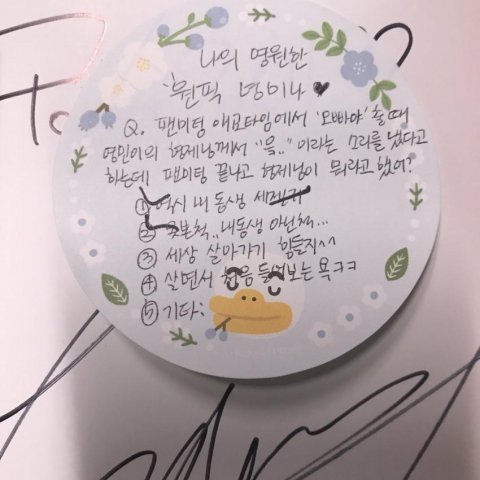 나의 영원한
원픽 녕미나 ♥
Q. 팬미팅 애교타임에서 '오빠야' 출 때
영민이의 형제님께서 "윽.." 이라는 소리를 냈다고
하는데 팬미팅 끝나고 형제님이 뭐라고 했어?
① 역시 내 동생 세젤귀
② 못본척.. 내동생 아닌척...
③ 세상 살아가기 힘들지^^
④ 살면서 처음 들어보는 욕ㅋㅋ
⑤ 기타: